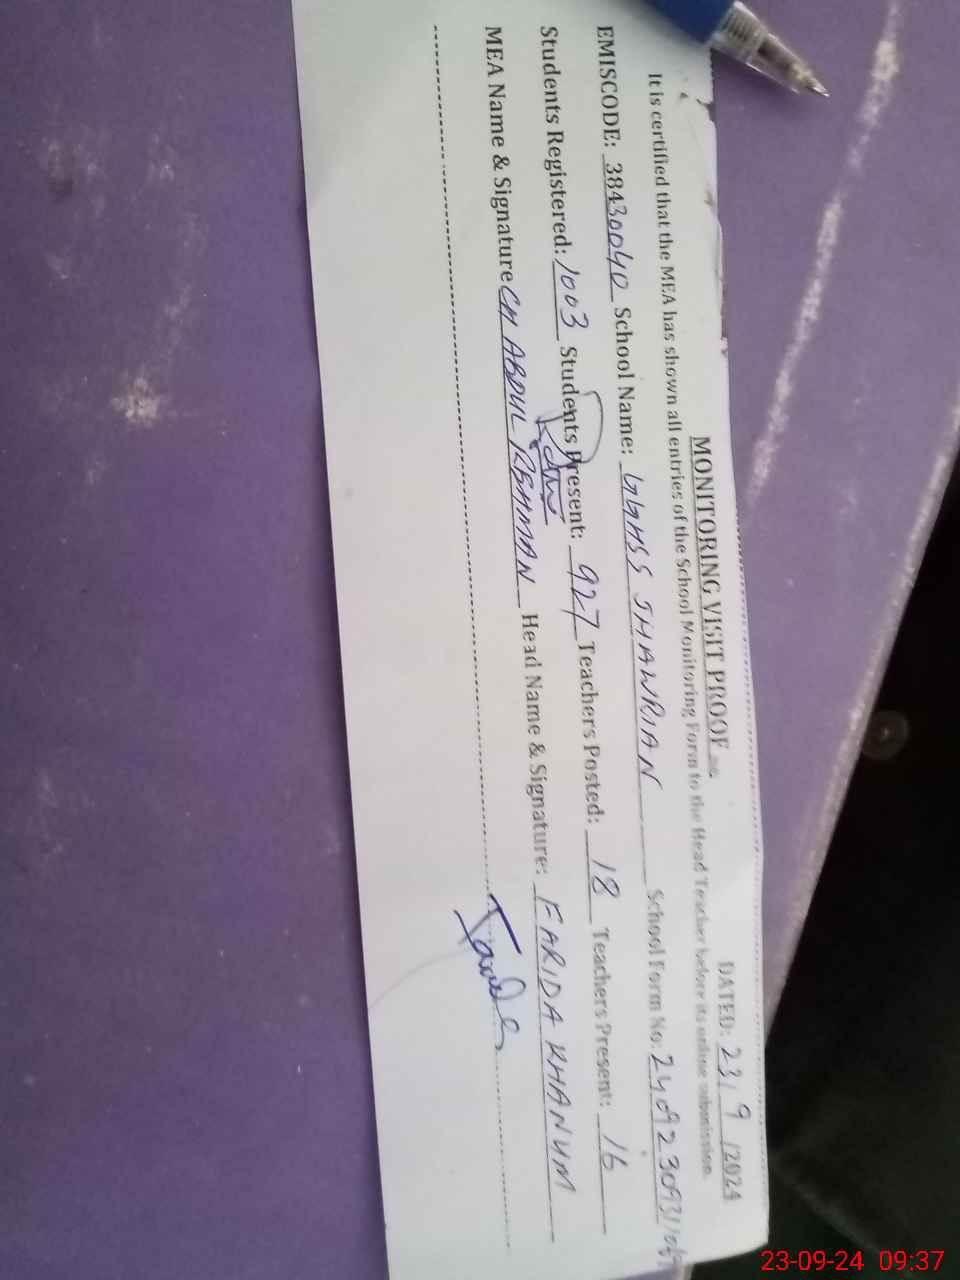 MONITORING VISIT PROOF
DATED: 23/9/2024
It is certified that the MEA has shown all entries of the School Monitoring Form to the Head Teacher before its online submission.
EMISCODE: 38430040 School Name: GGHSS JHAWRIAN School Form No: 240923093
Students Registered: 1003 Students Present: 927 Teachers Posted: 18 Teachers Present: 16
MEA Name & Signature CH ABDUL REHMAN Head Name & Signature: FARIDA KHANUM
23-09-24 09:37